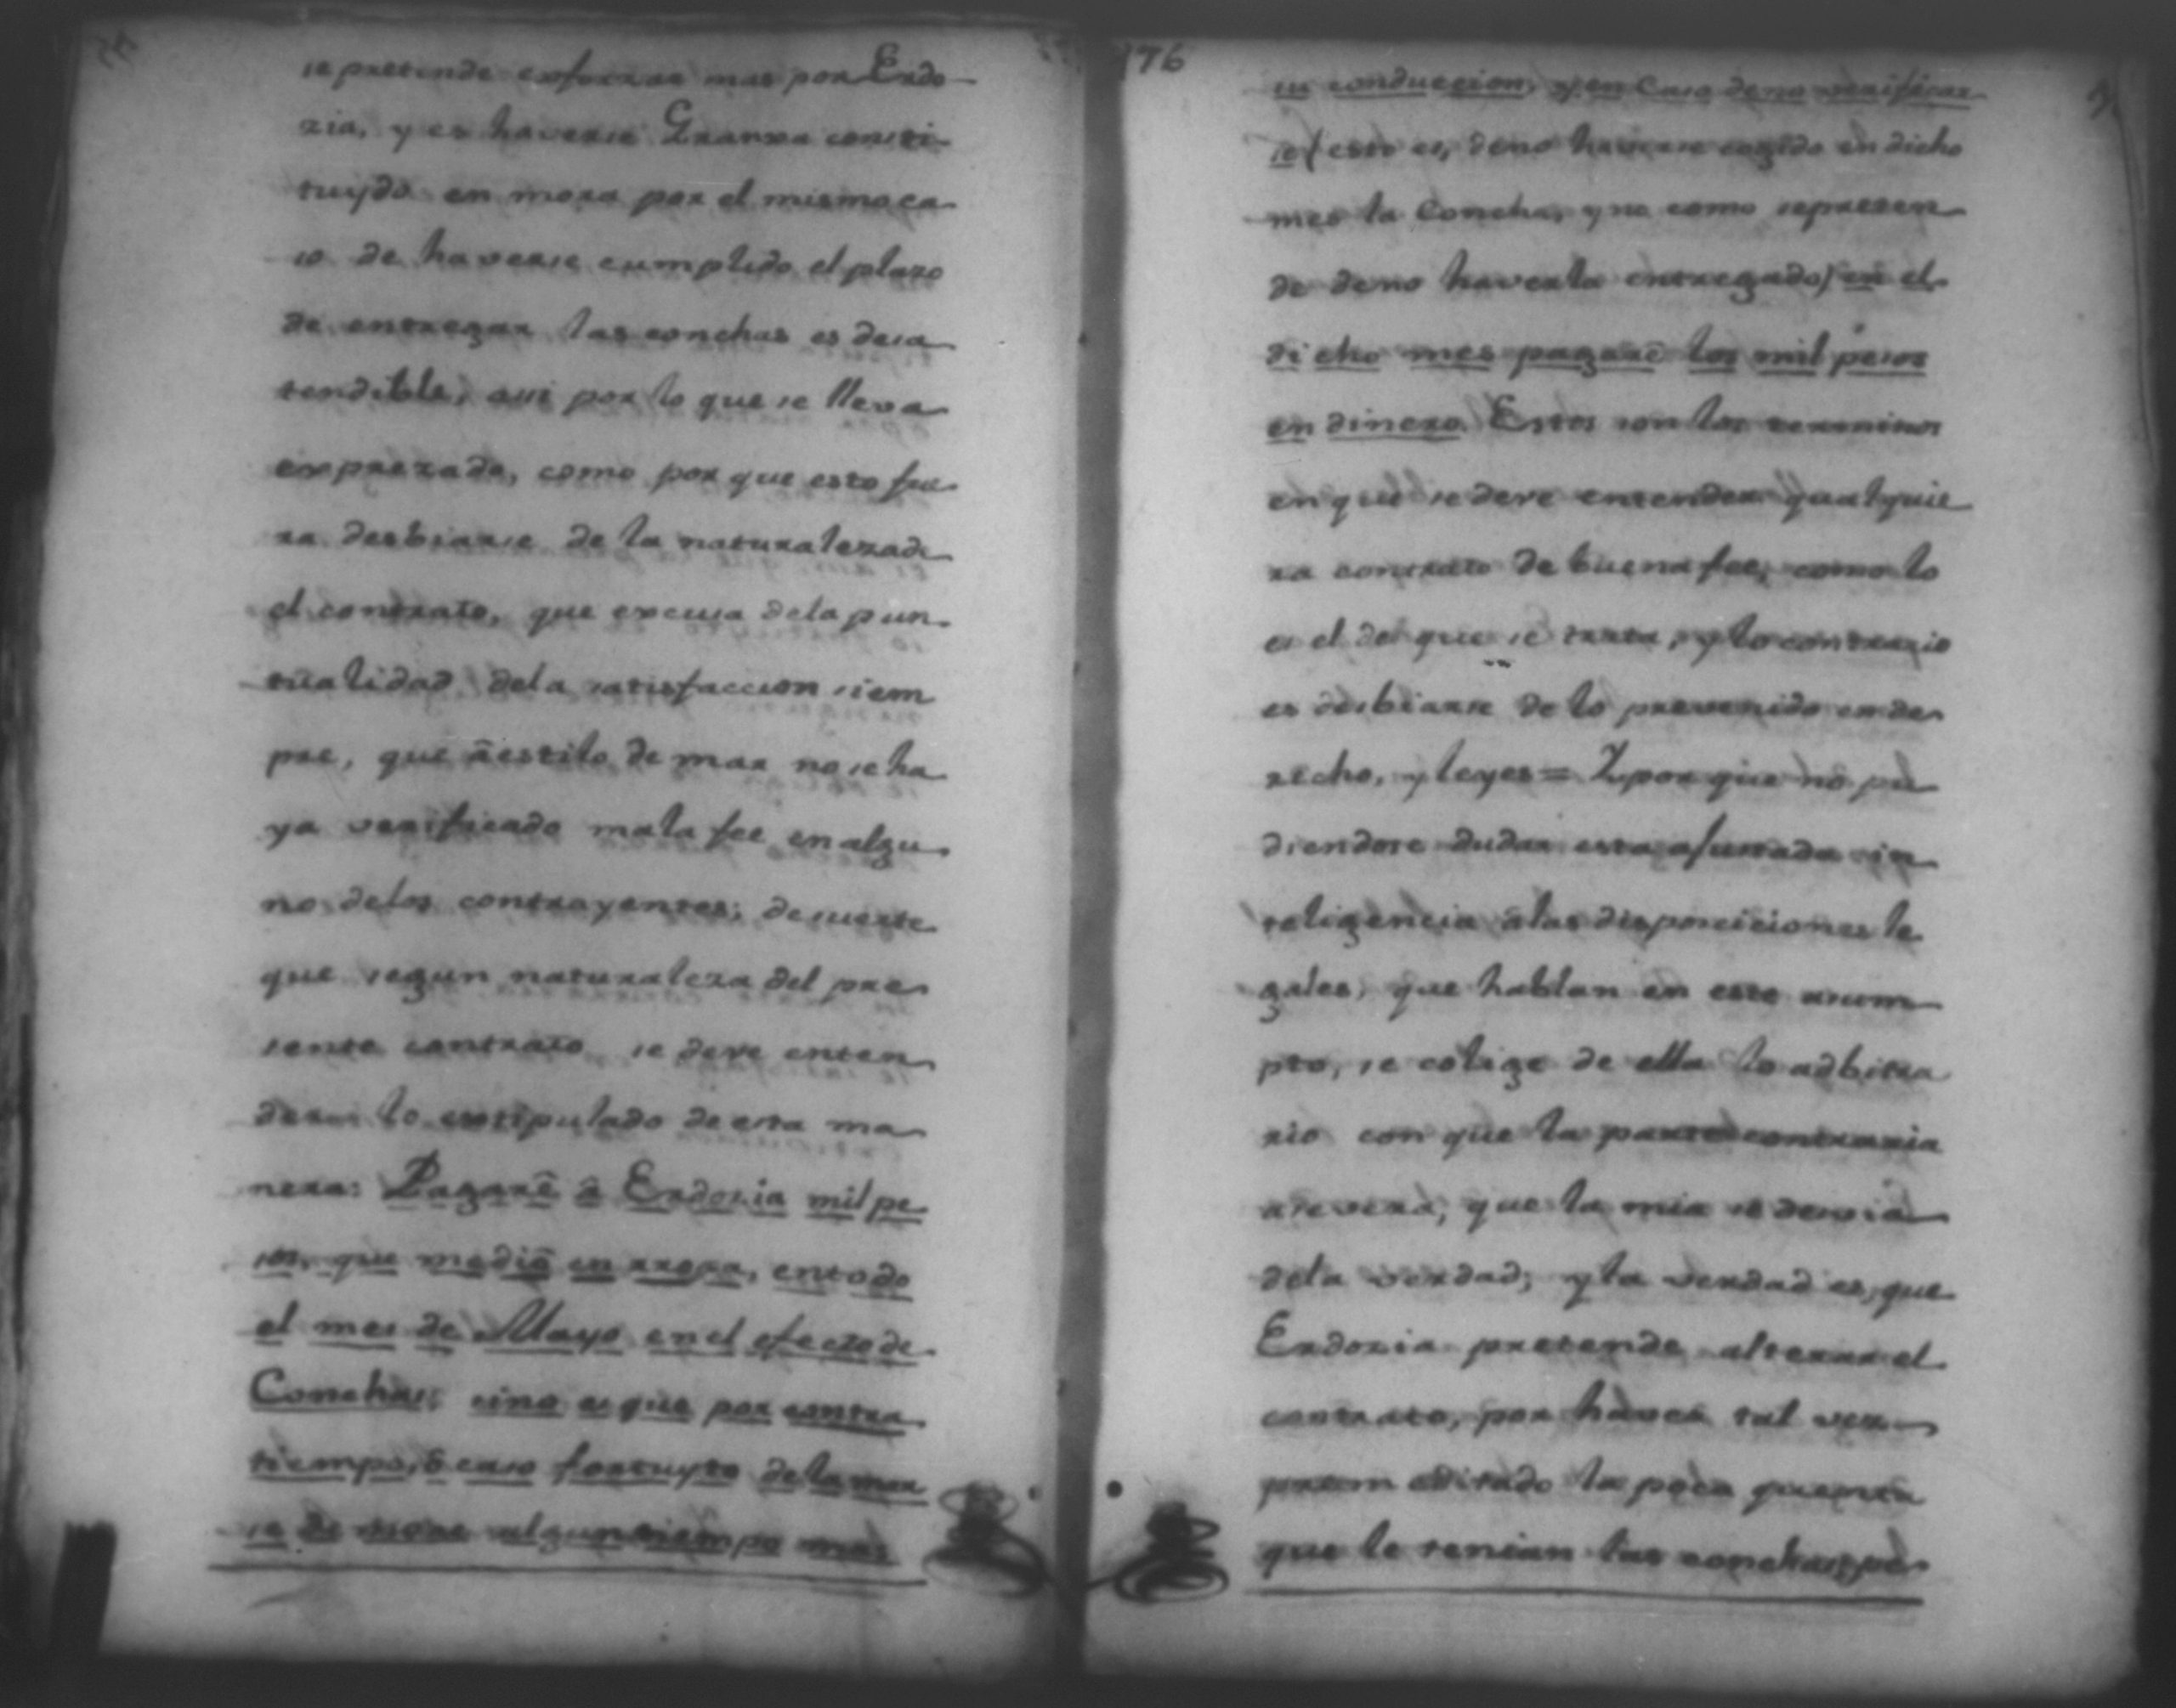 se pretende esforzar mas por Erdo
zia, y es haverse Granxa consti-
tuydo en mora por el mismo ca
so de haverse cumplido el plazo
de entregar las conchas es desa
tendible, assi por lo que se lleva
exprezado, como por que esto fue
ra desbiarse de la naturaleza de
el contrato, que excusa dela pun
tualidad dela satisfaccion siem
pre, que â estilo de mar no se ha
ya verificado mala fee en algu
no delos contrayentes; de suerte
que segun naturaleza del pre
sente contrato se deve enten
der lo estipulado de esta ma
nera: Pagarê â Erdozia mil pe
sos, que mediô en rropa, en todo
el mes de Mayo en el efecto de
Conchas; sino es que por contra
tiempo, ô caso fortuyto dela mar
se demore algun tiempo mas
176
su conduccion, y en Caso de no verificar
se (esto es, deno haverse cogido en dicho
mes la Concha, y no como se preten
de deno haverla entregado) en el
dicho mes pagarê los mil pesos
en dinero. Estos son los terminos
en que se deve entender qualquie
ra contrato de buena fee, como lo
es el de que se trata, y lo contrario
es desbiarse de lo prevenido en de
recho, y leyes = Y por que no pu
diendose dudar esta afunada in
teligencia â las disposiciones le
gales, que hablan en este asum
pto, se colige de ella lo adbitra
rio con que la parte contraria
asevera, que la mia se desvia
dela verdad; y la verdad es, que
Erdozia pretende alterar el
contrato, por haver tal vez
premeditado la poca quenta
que le tenian las conchas, pe